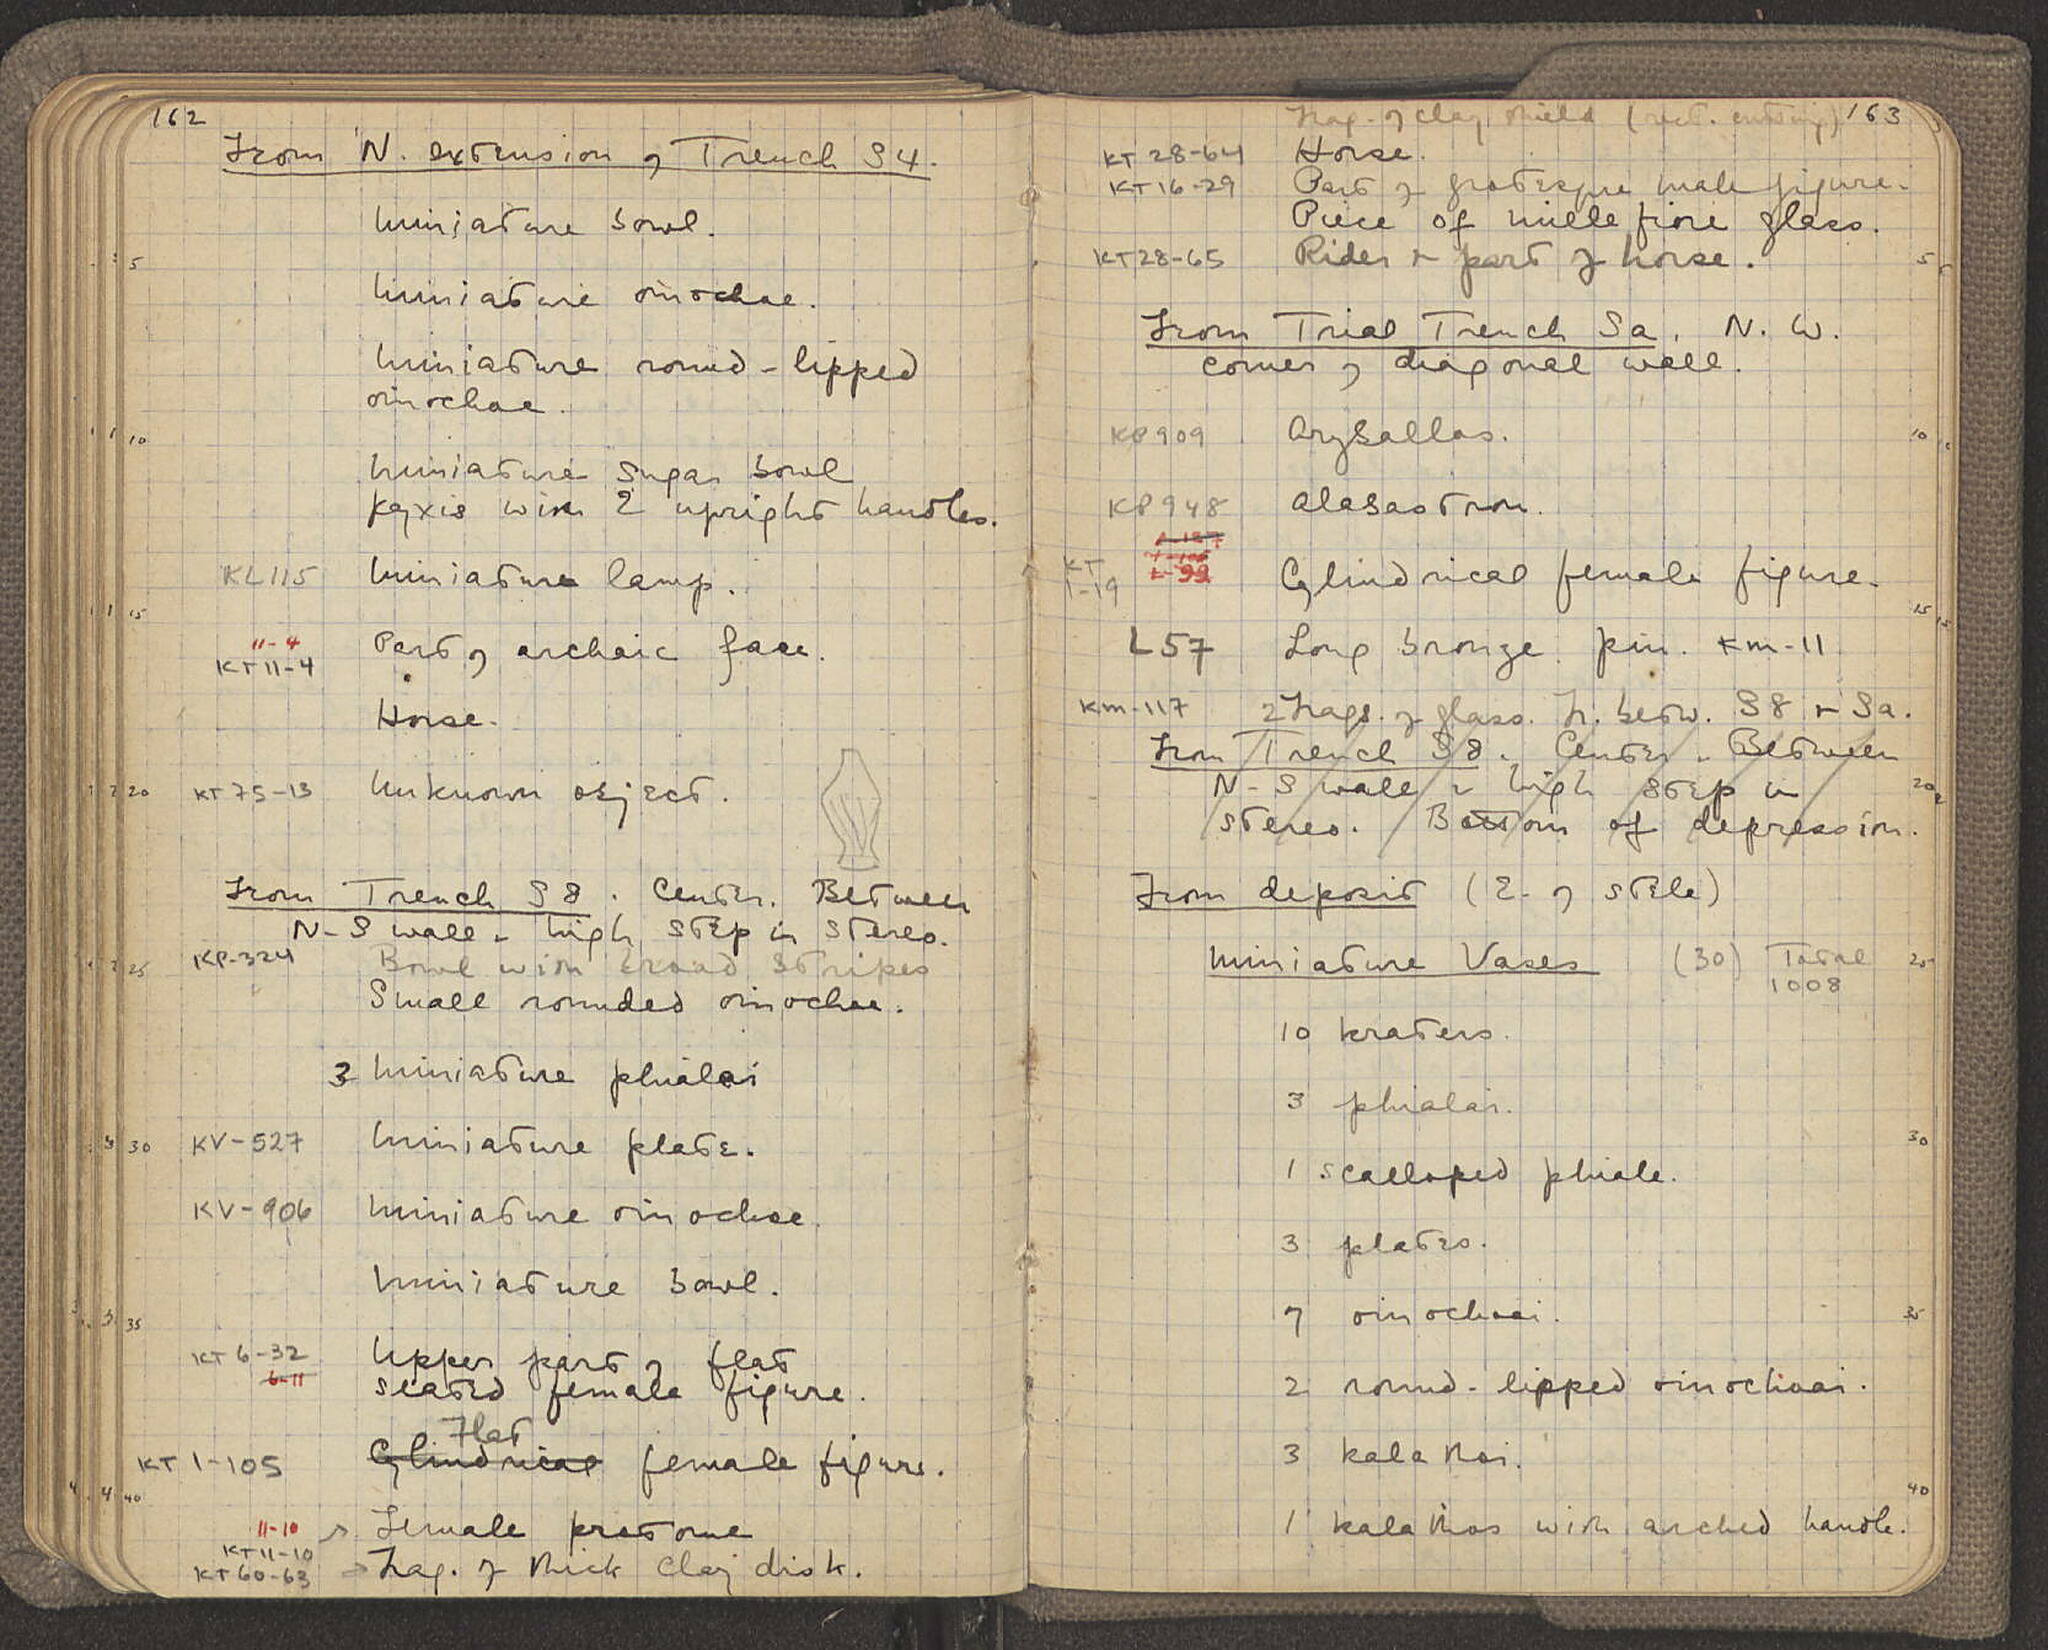 162
From N. extension of Trench S4.
Miniature bowl.
5
Miniature oinochoe.
Miniature round-lipped
oinochoe.
10
Miniature sugar bowl
pyxis with 2 upright handles.
KL115 Miniature lamp.
15
11-4
KT11-4 Part of archaic face.
Horse.
20 KT 75-13 Unknown object.
From Trench S8. Center. Between
N-S wall & high step in stereo.
25 KP-324 Bowl with broad stripes
Small rounded oinochoe.
3 Miniature phialai
30 KV-527 Miniature plate.
KV-906 Miniature oinochoe.
Miniature bowl.
35
KT 6-32 Upper part of flat
6-11 seated female figure.
Flat
KT 1-105 Cylindrical female figure.
40
11-10 Female protome
KT11-10
KT60-63 Frag. of thick clay disk.
Frag. of clay shield (rect. cutting) 163
KT 28-64 Horse.
KT16-29 Part of grotesque male figure.
Piece of millefiore glass.
KT28-65 Rider & part of horse. 5
From Trial Trench Sa. N. W.
corner of diagonal wall.
KP909 Aryballos. 10
KP948 Alabastron.
KT
1-19 Cylindrical female figure.
15
L57 Long bronze pin. KM-11
KM-117 2 Frags. of glass. Fr. betw. S8 & Sa.
From Trench S8. Center. Between
N-S wall & high step in 20
stereo. Bottom of depression.
From deposit (E. of stele)
Miniature Vases (30) Total 25
1008
10 kraters.
3 phialai.
30
1 scalloped phiale.
3 plates.
7 oinochoai. 35
2 round-lipped oinochoai.
3 kalathoi.
40
1 kalathos with arched handle.